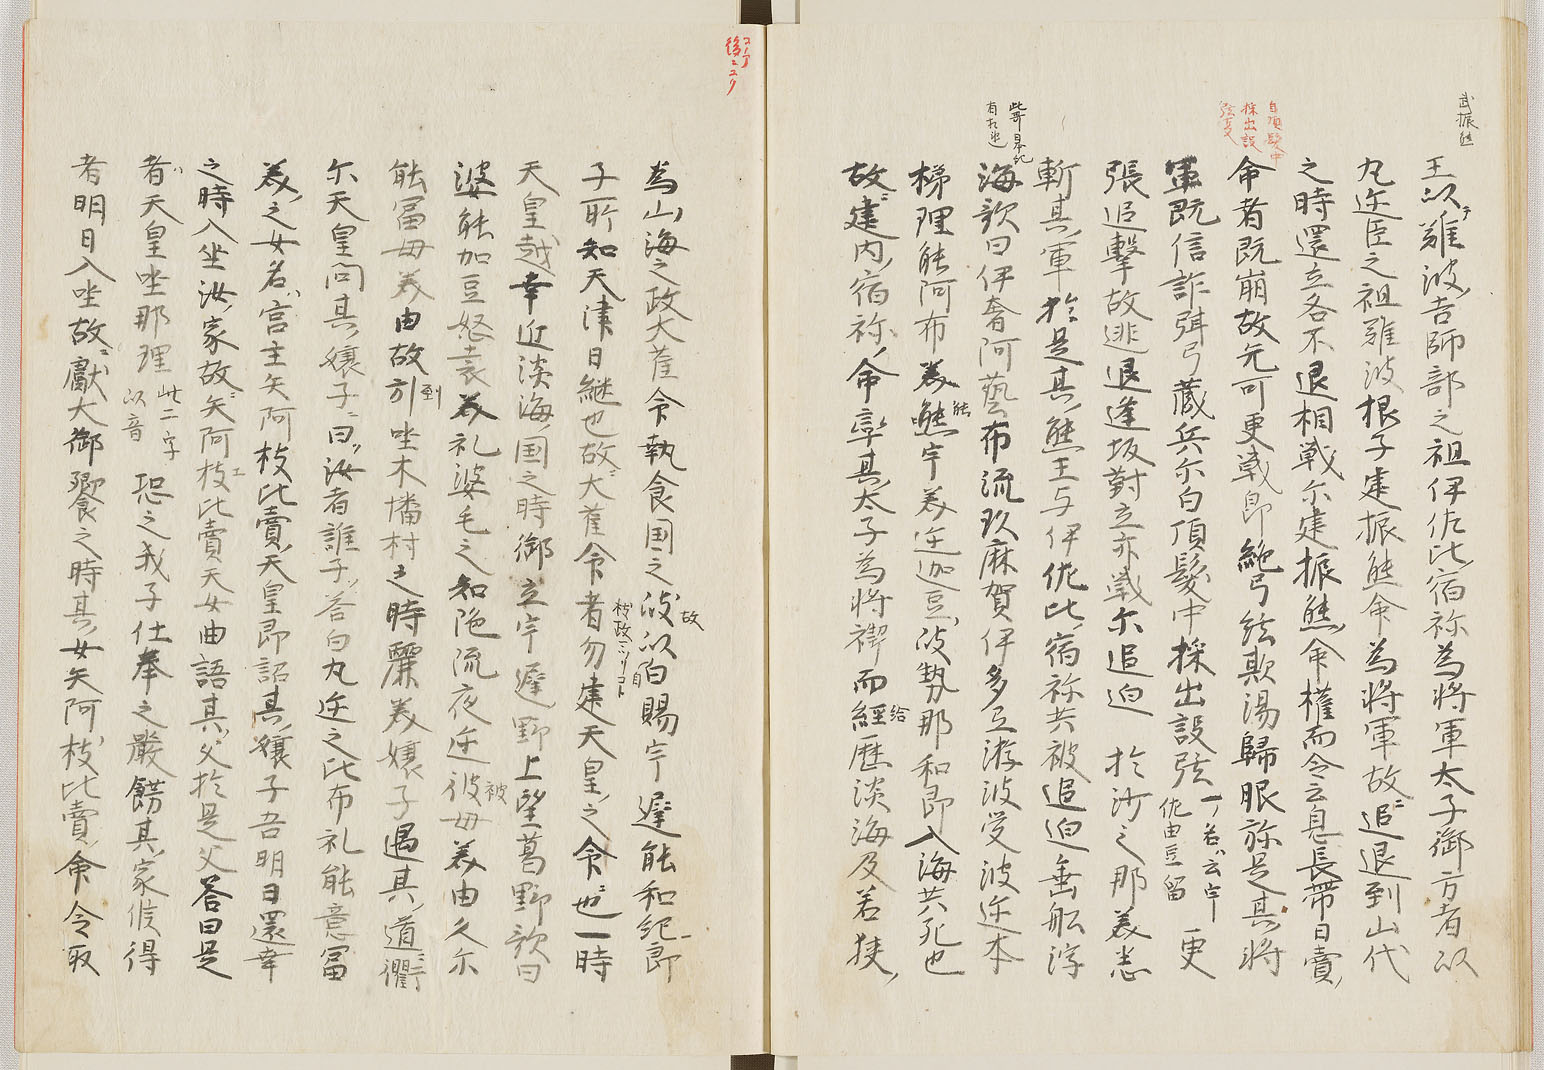 武振熊
王以難波吉師部之祖伊佐比宿祢為将軍太子御方者以
丸迩臣之祖難波根子建振熊命為将軍故追退到山代
之時還立各不退相戦尓建振熊命権而令云息長帯日賣
自頂髪中
採出設
弦意
命者既崩故无可更戦即絶弓弦欺湯歸服於是其将
軍既信詐弭弓蔵兵尓白頂髪中採出設弦一名云宇佐由豆留更
張追撃故逃退逢坂對立亦戦尓追迫於沙之那美悉
斬其軍於是其熊王与伊佐比宿祢共被追迫乗舩浮
此哥日本紀
有相違
海歌曰伊奢阿藝布流玖麻賀伊多弖游波受波迩本
梯理能阿布美能宇美迩迦豆波勢那和即入海共死也
能
故建内宿祢命率其太子為将禊而經歴淡海及若狭
給
為山海之政大雀命執食国之波以白賜宇遅能和紀即
故
自
子所知天津日継也故大雀命者勿違天皇之命也一時
天皇越幸近淡海国之時御立宇遅野上望葛野歌曰
婆能加豆怒袁美礼婆毛之知陁流夜迩彼母美由久尓
被
能冨母美由故引坐木幡村之時麗美嬢子遇其道衢
到
尓天皇問其嬢子曰汝者誰子答白丸迩之比布礼能意冨
美之女名宮主矢阿枝比賣天皇即詔其嬢子吾明日還幸
之時入坐汝家故矢阿枝比賣天女曲語其父於是父答曰是
者天皇坐那理此二字以音恐之我子仕奉之嚴餝其家候得
者明日入坐故獻大御饗之時其女矢阿枝比賣命令取